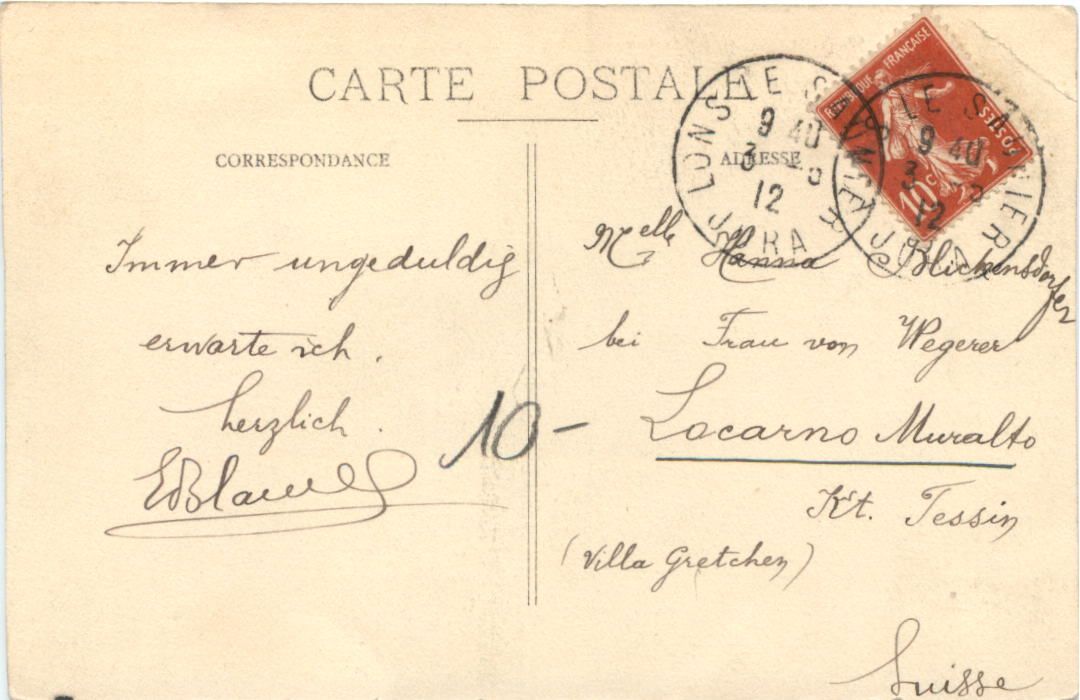 CARTE POSTALE
CORRESPONDANCE
ADRESSE
RÉPUBLIQUE FRANÇAISE
POSTES
10 c
LONS LE SAUNIER
9 40
3
12
JURA
LE SAUNIER
9 40
3
12
JURA
Immer ungeduldig
erwarte ich.
herzlich.
10-
Melle Hanna Blickensdorfer
bei Frau von Wegerer
Locarno Muralto
Kt. Tessin
(Villa Gretchen)
Suisse